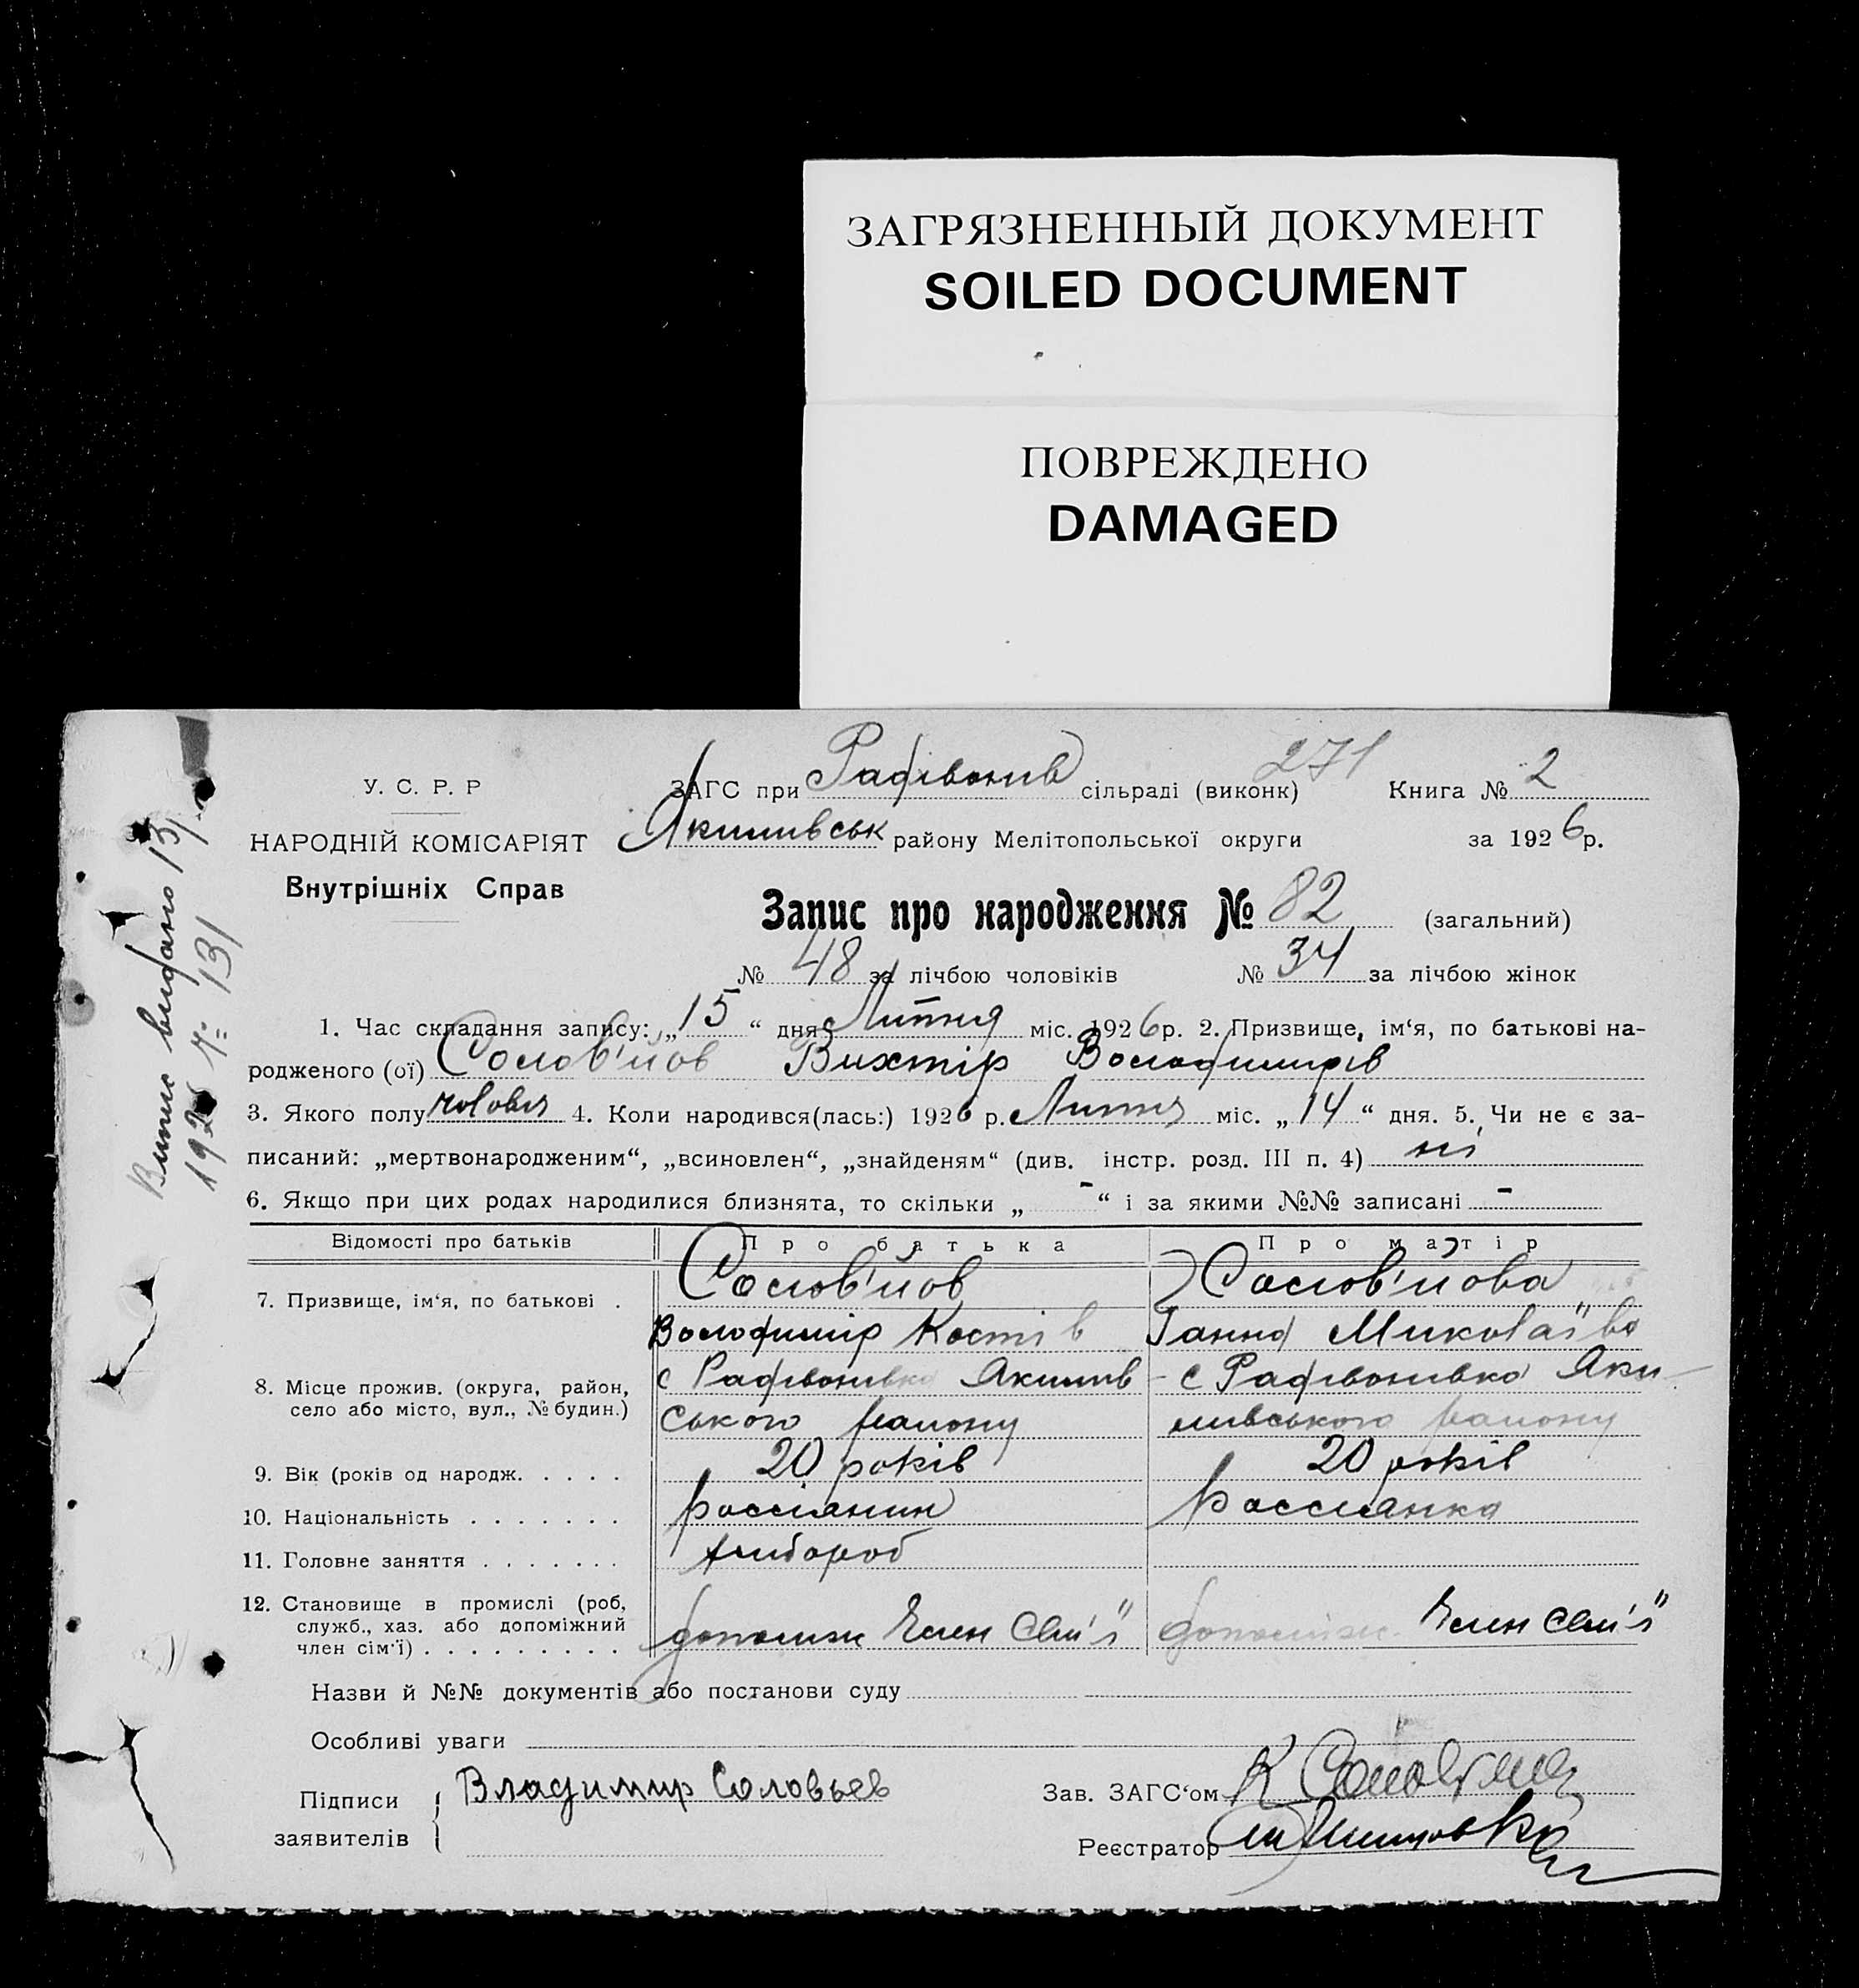 ЗАГРЯЗНЕННЫЙ ДОКУМЕНТ
SOILED DOCUMENT
ПОВРЕЖДЕНО
DAMAGED
271
У. С. Р. Р
НАРОДНІЙ КОМІСАРІЯТ
Внутрішніх Справ
ЗАГС при Радівонив сільраді (виконк) Книга № 2
Якимивськ району Мелітопольської округи за 1926р.
Запис про народження № 82 (загальний)
№ 48 за лічбою чоловіків № 34 за лічбою жінок
1. Час складання запису: „15“ дня Липня міс. 1926р. 2. Призвище, ім‘я, по батькові на-
родженого (ої) Солов'йов Вихтір Володимирів
3. Якого полу 4. Коли народився(лась:) 1926 р. Липня міс. „14“ дня. 5. Чи не є за-
писаний: „мертвонародженим“, „всиновлен“, „знайденям“ (див. інстр. розд. III п. 4) ні
6. Якщо при цих родах народилися близнята, то скільки „-“ і за якими №№ записані -
Відомості про батьків Про батька Про матір
7. Призвище, ім‘я, по батькові . Солов'йов Солов'йова
Володимір Костів Ганна Миколаївв
8. Місце прожив. (округа, район, с Радівонивка Якимив с Радівонивка Яки-
село або місто, вул., № будин.) ського району мивського району
9. Вік (років од народж. . . . . 20 років 20 років
10. Національність . . . . . . . россіянин россіянка
11. Головне заняття . . . . . . . хлибороб
12. Становище в промислі (роб,
служб., хаз. або допоміжний
член сім‘ї) . . . . . . . . . допоміж член сем'ї допоміж. член сем'ї
Назви й №№ документів або постанови суду
Особливі уваги
Підписи Владимир Соловьев Зав. ЗАГС‘ом
заявителів Реєстратор
Випис видано 13/